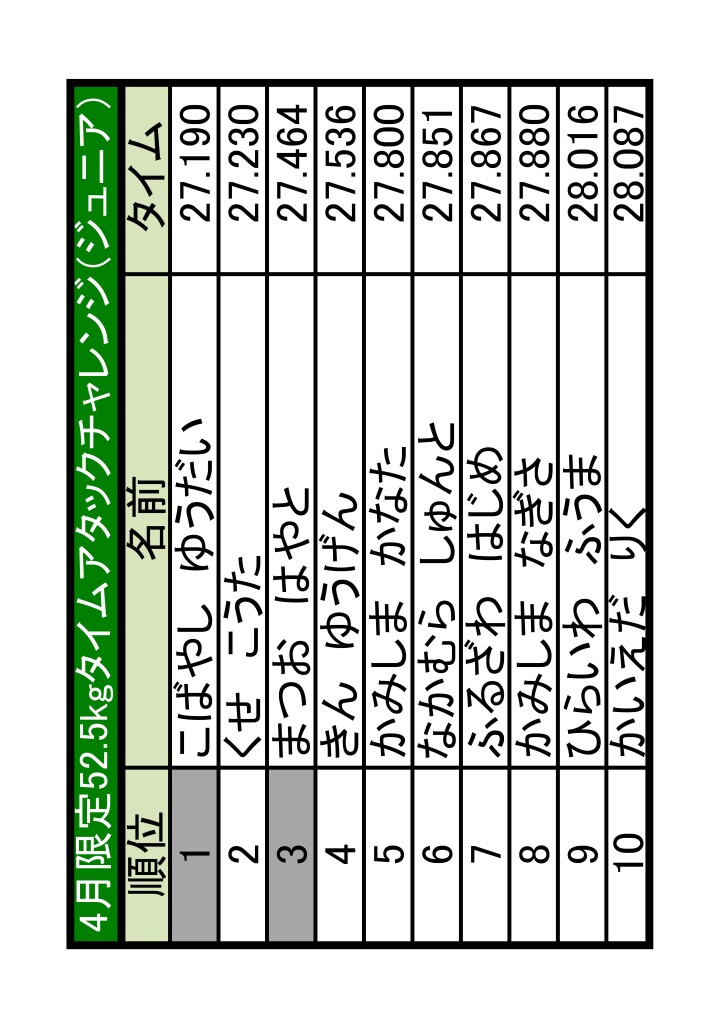 4月限定52.5kgタイムアタックチャレンジ(ジュニア)
順位 名前 タイム
1 こばやし ゆうだい 27.190
2 くせ こうた 27.230
3 まつお はやと 27.464
4 きん ゆうげん 27.536
5 かみしま かなた 27.800
6 なかむら しゅんと 27.851
7 ふるざわ はじめ 27.867
8 かみしま なぎさ 27.880
9 ひらいわ ふうま 28.016
10 かいえだ りく 28.087